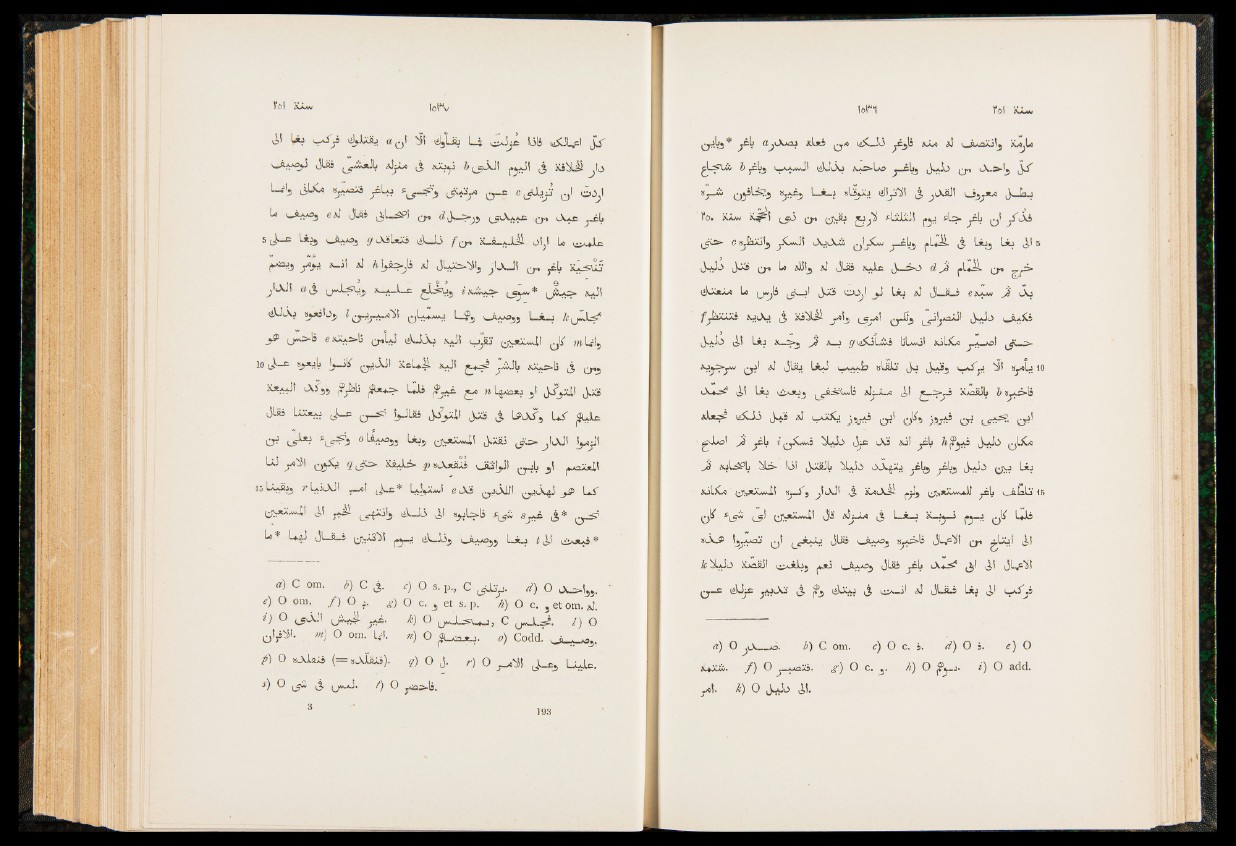 سنة ٢٥١ ١٥٣٦
مارمّة وانتصف له منه فاوغر ذلك من فعله بصدر a باغر *وباين
كلّ واحد من دليل وباغر صاحبه بذلك السبب وباغر b شجاع
بطل معروف القدر في الاتراك يتوقّاه بغا وغيره ويخافون شرّه
فذكر ان باغر جاء يوم الثلثاء لاربع بقين من ذى الحجّة سنة ٢٥٠
5 الى بغا وبغا في الحمّام وباغر سكران شديد السكر وانتظره c حتى
خرج من الحمّام ثم d دخل عليه فقال له والله ما من قتل دليل
بدّ ثم سبّه e فقال له بغا لو اردت قتل ابنى فارس ما منعتك
فكيف دليل النصرانيّ ولكن امرى وامر الخلافة في يديه فتنتظر f
حتى اصيّر مكانه انسانا فشأنك g به ثم وجّه بغا الى دليل
10 يأمره الّا يركب وقيل بل تلقّاه طبيب لبغا يقال له ابن سرجويه
فاخبره b بالقصّة فرجع الى منزله فاستخفى وبعث بغا الى محمّد
ابن يحيى بن فيروز وكان ابن فيروز يكتب له قبل ذلك فجعله
مكان دليل فيوهم h باغر انه قد عزل دليلا فسكن i باغر ثم اصلح
بغا بين دليل وباغر وباغر يتهدّد دليلا بالقتل اذا خلا باصحابه ثم
15 تلطّف باغر للمستعين ولزم الخدمة في الدار وكره المستعين مكانه
فلمّا كان يوم نوبة بغا في منزله قال المستعين ايّ شىء كان
الى ايتاخ من الاعمال فاخبره وصيف فقال ينبغى ان تصيّروا هذه
الاعمال الى ابى محمّد باغر فقال وصيف نعم وبلغت القصّة دليلا k
فركب الى بغا فقال له انت في بيتك وهم في تدبير عزلك عن
a) O صدر. b) C om. c) O c. ف. d) O ف. e) O
شتمه. f) O فتصبر. g) O c. و. h) O يوهم. i) O add.
امر. k) O الى دليل.
سنة ٢٥١ ١٥٣٧
كلّ اعمالك فاذا عُزلتَ فما بقاوك الّا ان a يقتلوك فركب بغا الى
دار الخلافة في اليوم الذى b نوبته في منزله بالعشيّ فقال لوصيف
اردت ان تزيلنى c عن مرتبتى وتجىء بباغر فتصيّره مكانى وانما
باغر عبد من عبيدى ورجل d من اصحابى فقال له e وصيف ما
5 علمت ما اراد الخليفة من f ذلك فتعاقد g وصيف وبغا على
تنحية باغر من الدار والاحتيال له فارجفوا h له انه يؤمّر ويضمّ
اليه جيش *سوى جيشه i ويُخلع عليه ويُجلس في a الدار
مجلس k بغا ووصيف وهما يسمّيان الاميرين l ودافعوه بذلك
وانما m كان المستعين تقرّب اليه بذلك ليأمن ناحيته e فاحسّ هو
10 ومن في ناحيته بالشرّ فجمع اليه الجماعة الذين كانوا بايعوه على
قتل المتوكّل او بعضها n مع غيرهم فلمّا جمعهم ناظرهم ووكّد البيعة
عليهم كما وكّدها في قتل المتوكّل فقالوا نحن على بيعتنا فقال
الزموا الدار حتى نقتل المستعين وبغا ووصيفًا o ونجىء بعليّ بن
المعتصم او بابن الواثق فنُقعده p خليفة حتى q يكون الامر لنا
15 كما هو لهذين اللذين قد e استوليا *على امر الدنيا r وبقينا
نحن *في غير شىء s فاجابوه الى ذلك وانتهى الخبر الى المستعين
*فبعث الى t بغا ووصيف وذلك يوم الاثنين فقال لهما *ما
a) C om. b) C في. c) O s. p., C نرتلنى. d) O وواحد.
e) O om. f) O ب. g) O c. و et s. p. h) O c. و et om. له.
i) O غير الجيش الذى. k) O C l) O
m) O om. لها. n) O بعضهم. o) Codd. ووصيف.
p) O فنقلده (= فنقلّده). q) O ل. r) O علينا وعلى الامر.
s) O ليس في شىء. t) O فاحضر.
3 193